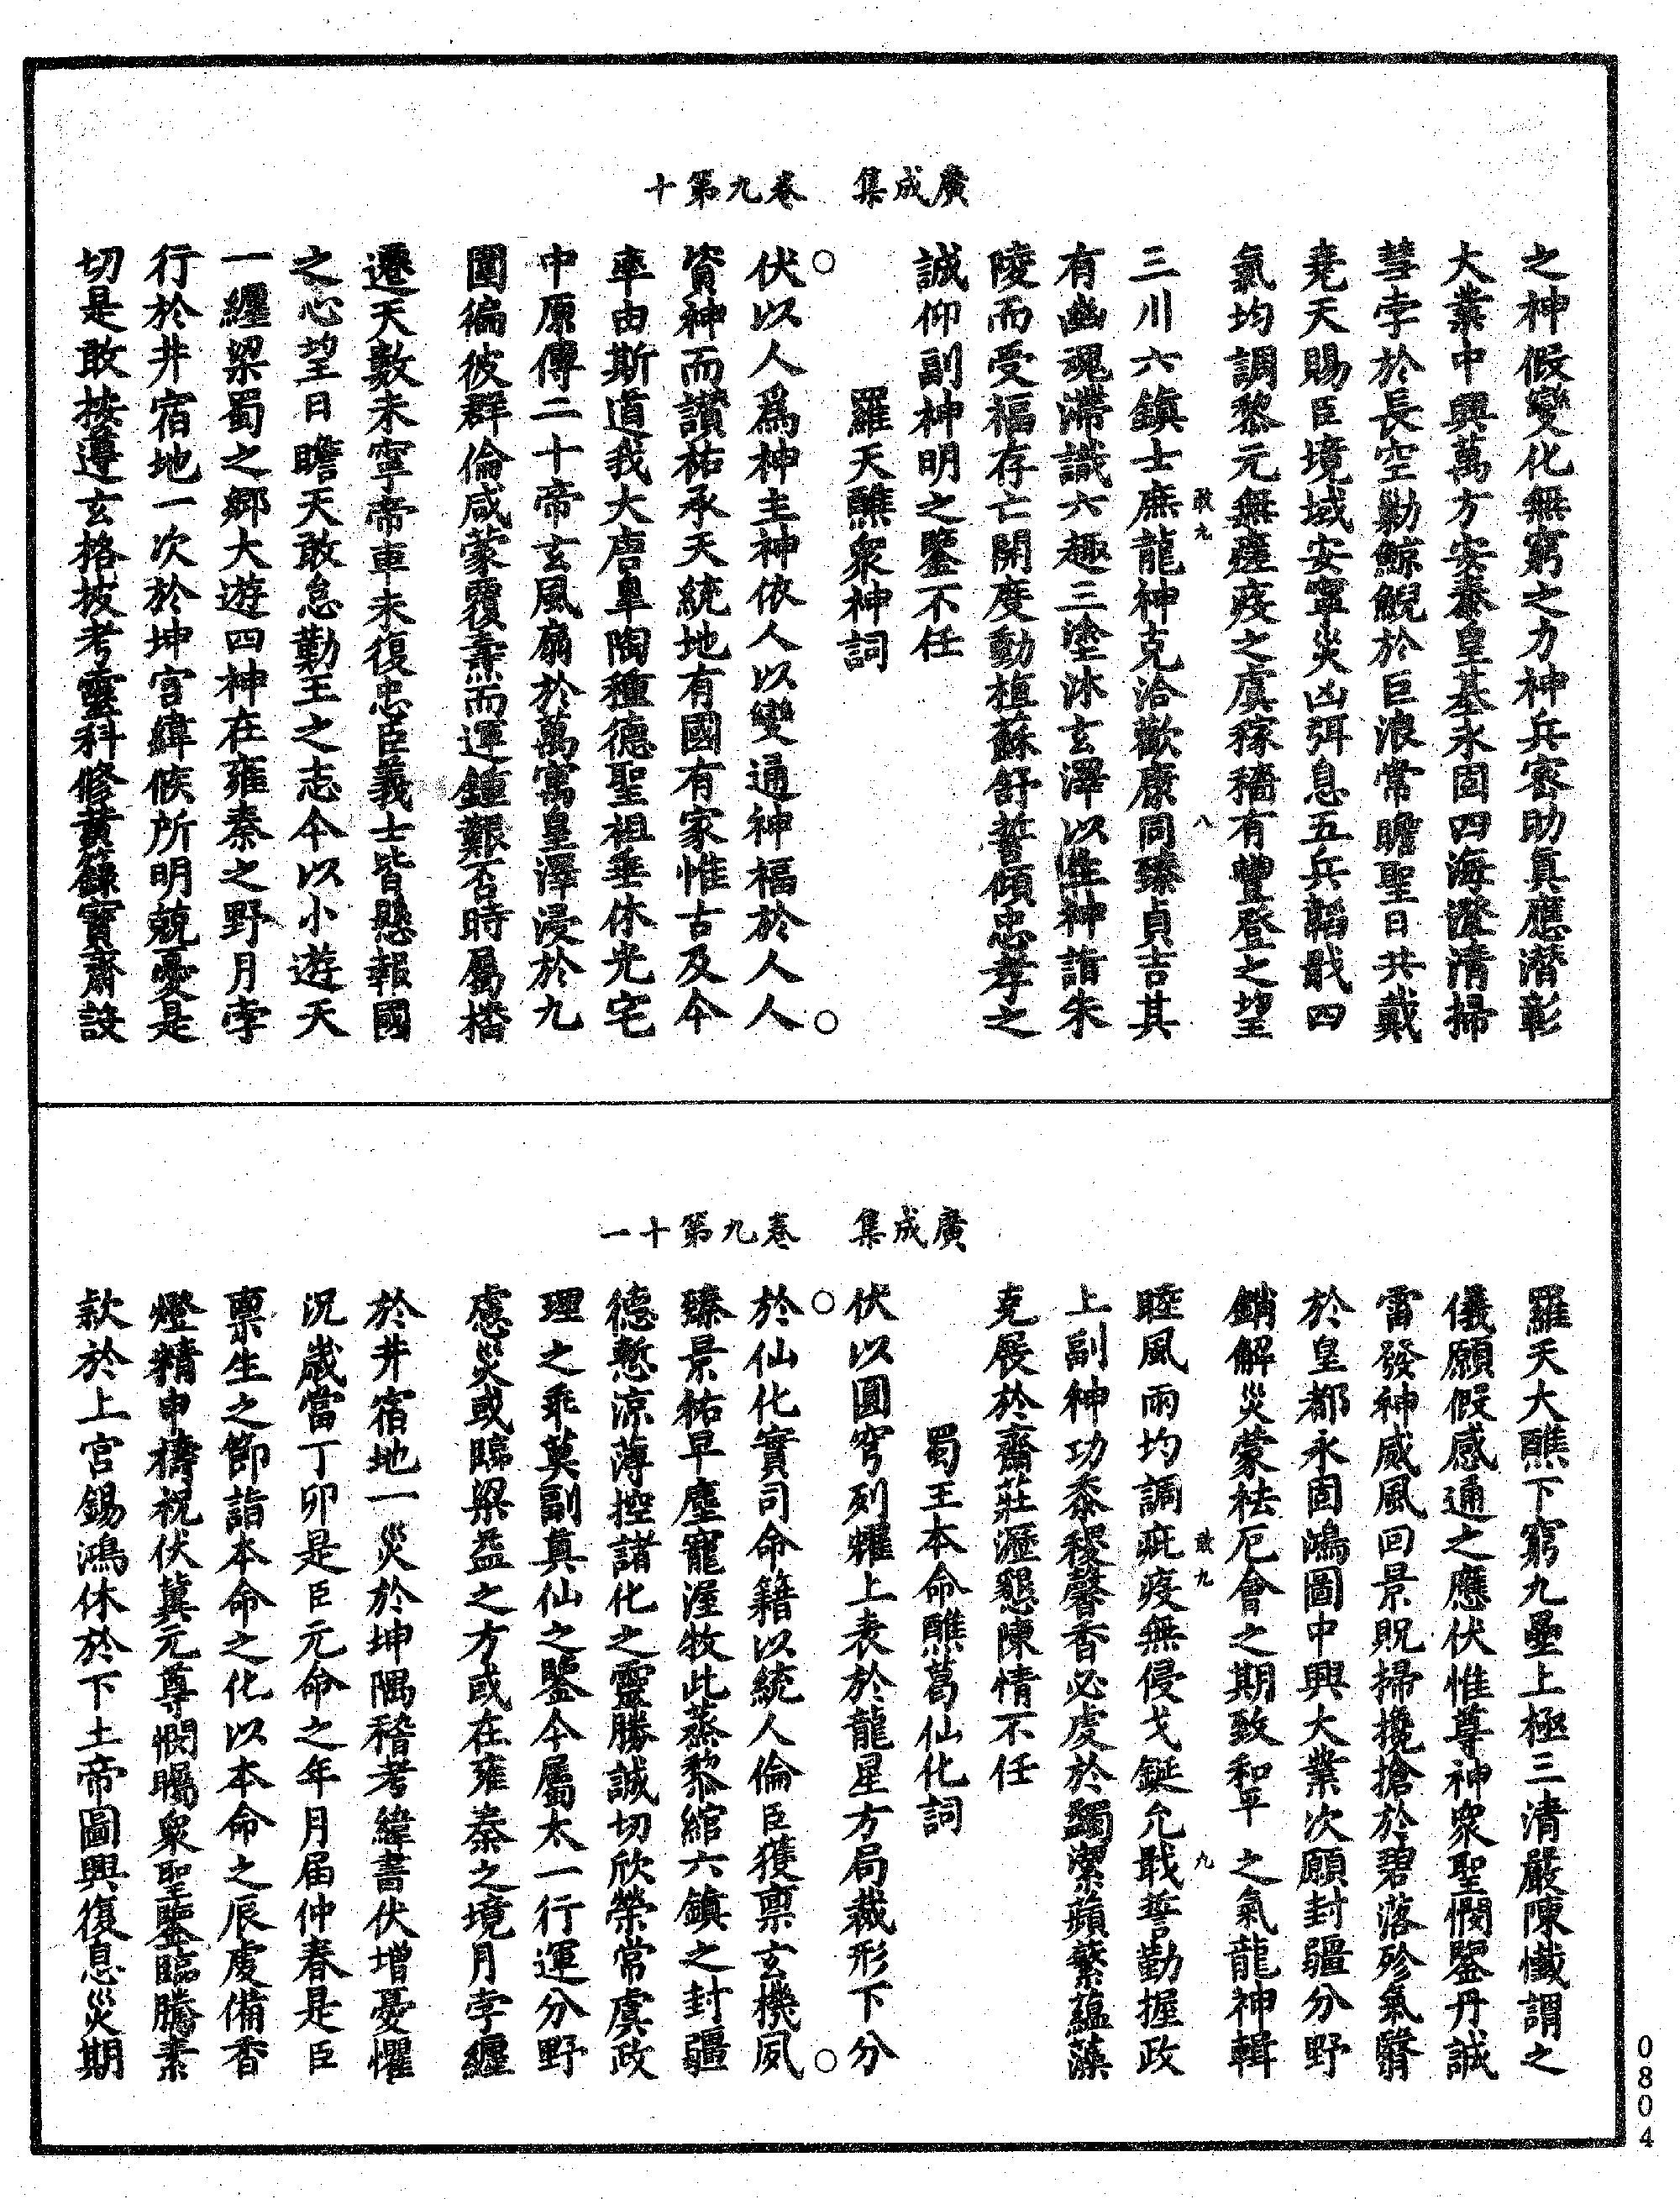 廣成集　卷九第十
之神假變化無窮之力神兵密助真應潛彰
大業中興萬方安泰皇基永固四海澄清掃
彗孛於長空勦鯨鯢於巨浪常瞻聖日共戴
堯天賜臣境域安寧災凶弭息五兵韜戢四
氣均調黎元無瘥疫之虞稼穡有豐登之望
三川六鎮士庶龍神克洽歡康同臻貞吉其
有幽魂滯識六趣三塗沐玄澤以生神詣朱
陵而受福存亡開度動植蘇舒誓傾忠孝之
誠仰副神明之鑒不任
羅天醮衆神詞
伏以人爲神主神依人以變通神福於人人
資神而讚祐承天統地有國有家惟古及今
率由斯道我大唐臯陶種德聖祖垂休光宅
中原傳二十帝玄風扇於萬寓皇澤浸於九
圍徧彼群倫咸蒙覆燾而運鍾艱否時屬檣
遷天數未寧帝車未復忠臣義士皆懸報國
之心望日瞻天敢怠勤王之志今以小遊天
一纏梁蜀之鄉大遊四神在雍秦之野月孛
行於井宿地一次於坤宮緯候所明兢憂是
切是敢按遵玄格披考靈科修黃籙寶齋設
廣成集　卷九第十一
羅天大醮下窮九壘上極三清嚴陳懺謝之
儀願假感通之應伏惟尊神衆聖憫鑒丹誠
雷發神威風回景貺掃攙搶於碧落殄氣翳
於皇都永固鴻圖中興大業次願封疆分野
銷解災蒙袪厄會之期致和平之氣龍神輯
睦風雨均調疵疫無侵戈鋋允戢誓勤握政
上副神功黍稷馨香必虔於蠲潔蘋蘩蘊藻
克展於齋莊瀝懇陳情不任
蜀王本命醮葛仙化詞
伏以圓穹列耀上表於龍星方局裁形下分
於仙化實司命籍以統人倫臣獲禀玄機夙
臻景祐早塵寵渥牧此蒸黎綰六鎮之封疆
德慙涼薄控諸化之靈勝誠切欣榮常虞政
理之乖莫副真仙之鑒今屬太一行運分野
慮災或臨梁益之方或在雍秦之境月孛纏
於井宿地一災於坤隅稽考緯書伏增憂懼
況歲當丁卯是臣元命之年月届仲春是臣
禀生之節詣本命之化以本命之辰虔備香
燈精申禱祝伏冀元尊憫矚衆聖鑒臨騰素
款於上宮錫鴻休於下土帝圖興復息災期
㪍九
八
㪍九
九
0804